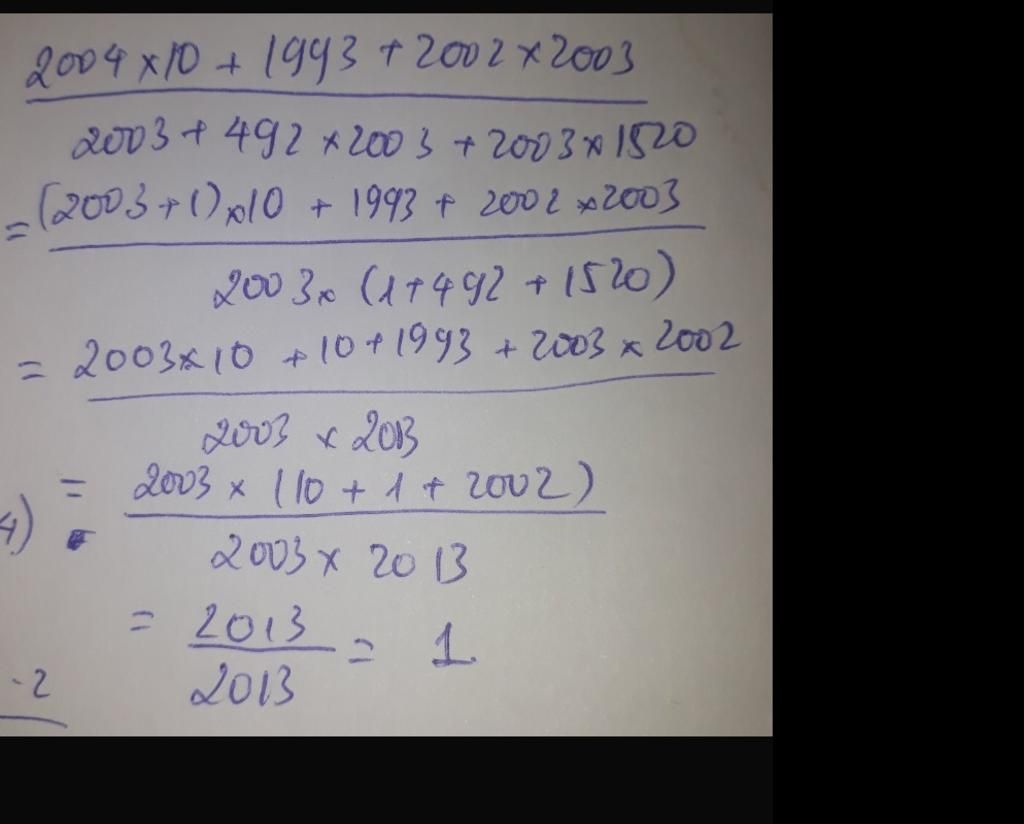 2004 × 10 + 1993 + 2002 × 2003
2003 + 492 × 2003 + 2003 × 1520
= (2003 + 1) × 10 + 1993 + 2002 × 2003
2003 × (1 + 492 + 1520)
= 2003 × 10 + 10 + 1993 + 2003 × 2002
2003 × 2013
= 2003 × (10 + 1 + 2002)
4)
2003 × 2013
= 2013 = 1
2013
-2